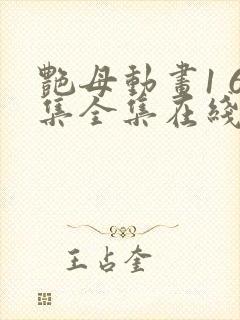 艷母動畫16
集全集在綫
王占奎